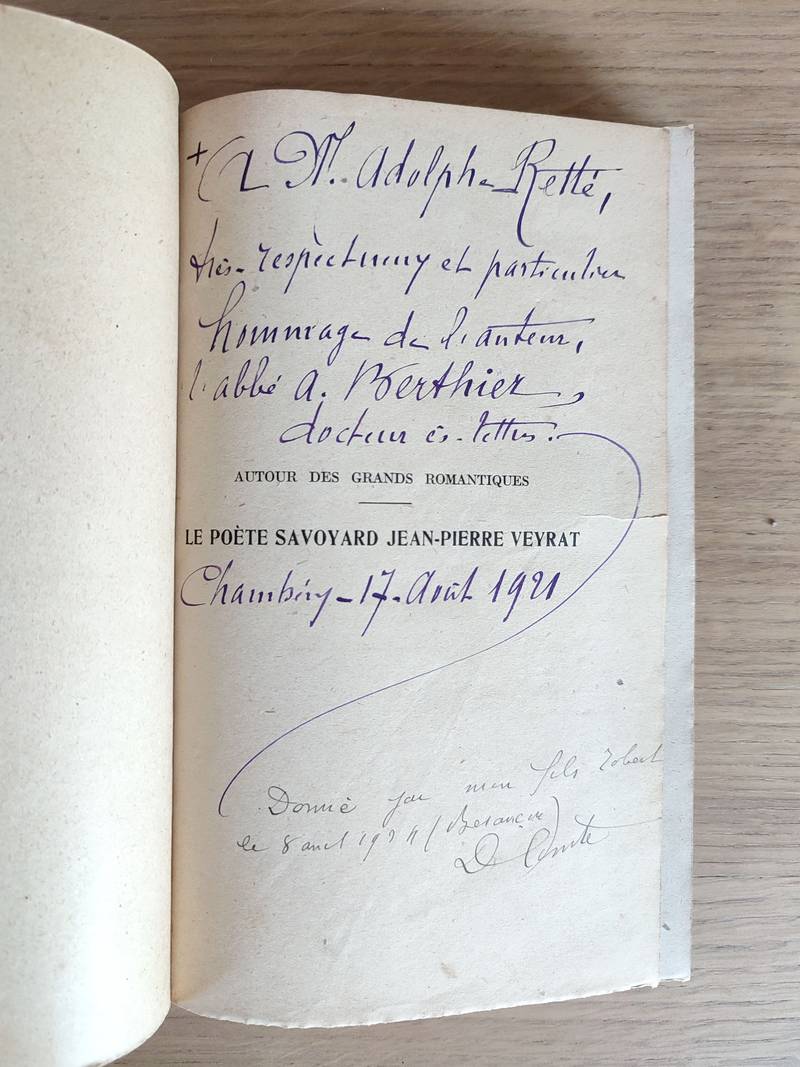 + A M. Adolphe Retté,
très-respectueux et particulier
hommage de l'auteur,
l'abbé A. Berthier,
docteur ès-lettres.
AUTOUR DES GRANDS ROMANTIQUES
LE POÈTE SAVOYARD JEAN-PIERRE VEYRAT
Chambéry-17-Août 1921
Donné par mon fils Robert
le 8 (Besançon)
D Comte